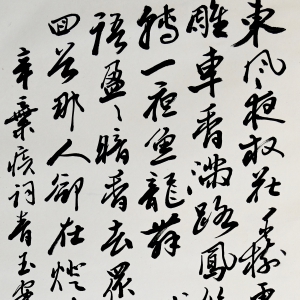 東風夜放花千樹更
雕車香滿路鳳
轉一夜魚龍舞
語盈盈暗香去眾
回首那人卻在燈
辛棄疾詞青玉案